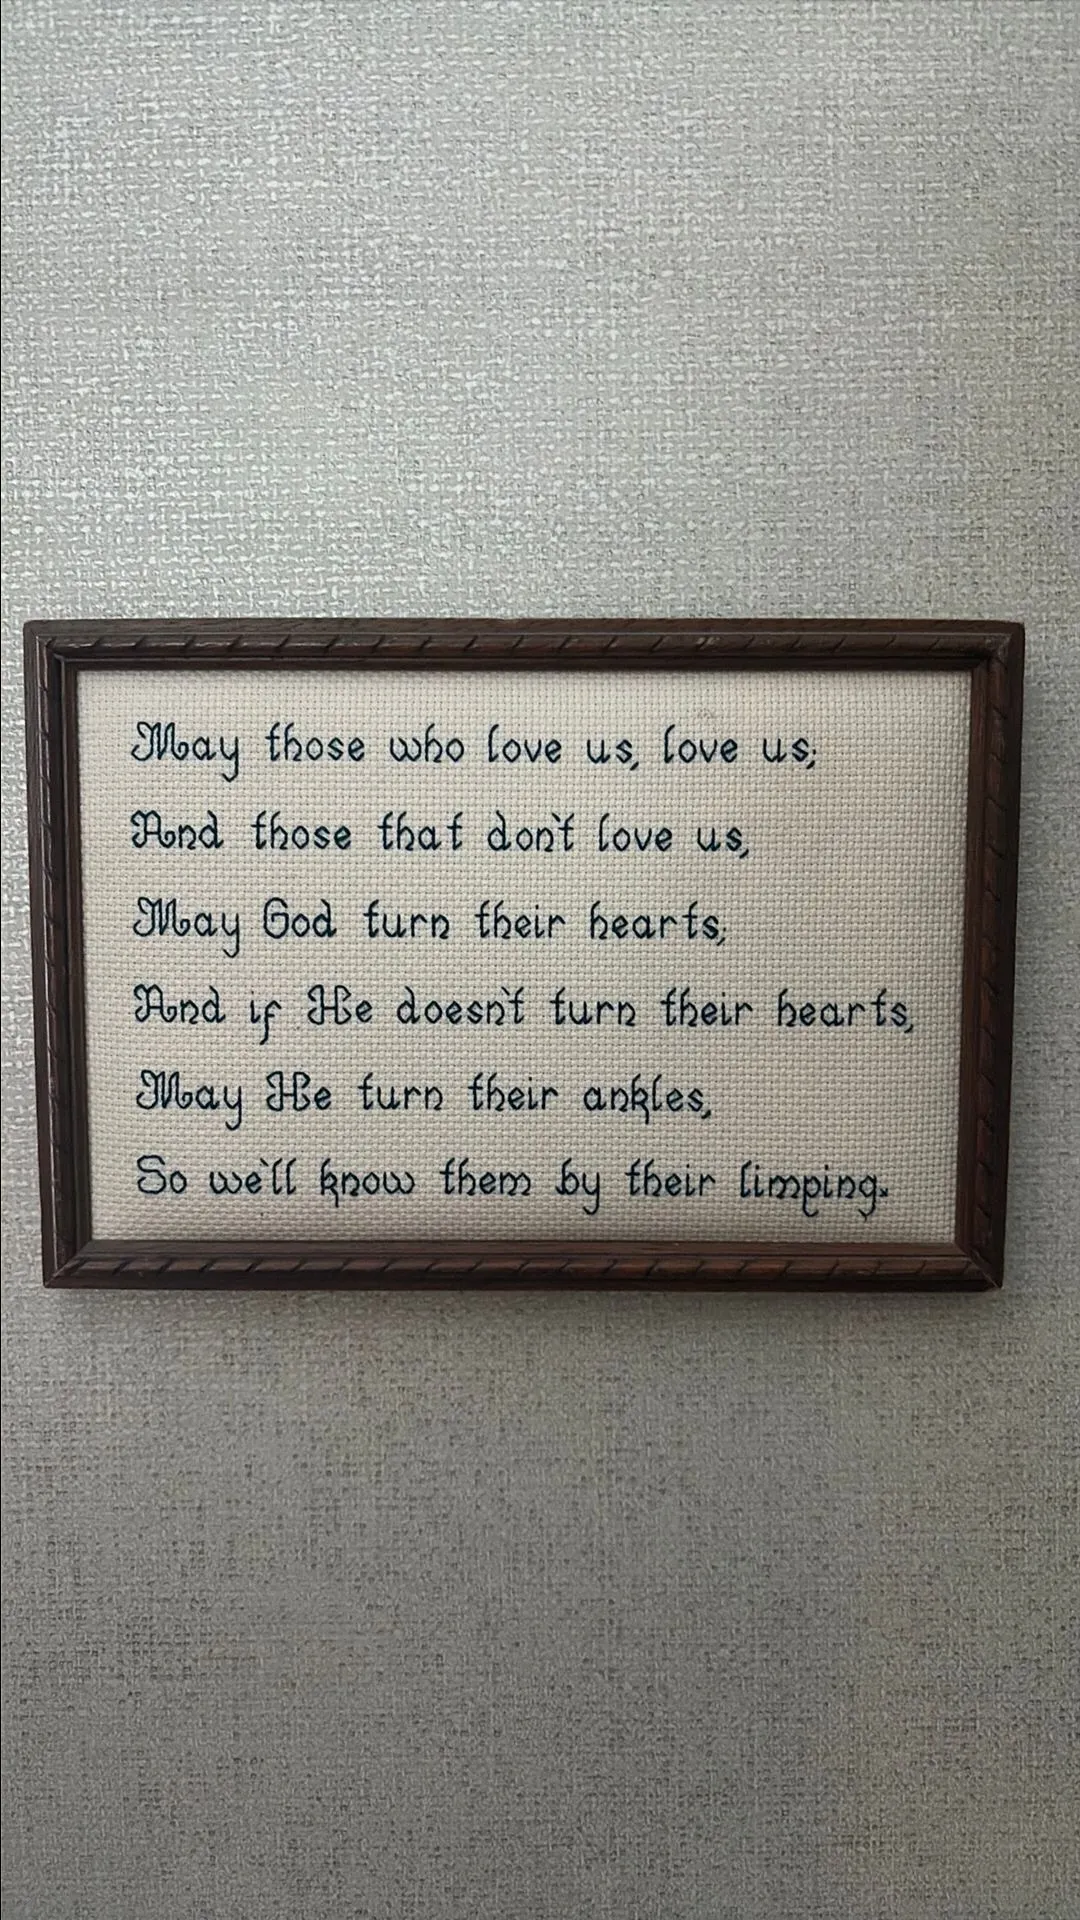 May those who love us, love us;
And those that don't love us,
May God turn their hearts;
And if He doesn't turn their hearts,
May He turn their ankles,
So we'll know them by their limping.